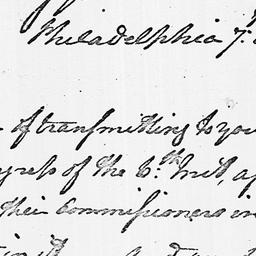 Philadelphia 7.
of transmitting to you
gress of the 6.th inst, ap
their Commissioners in